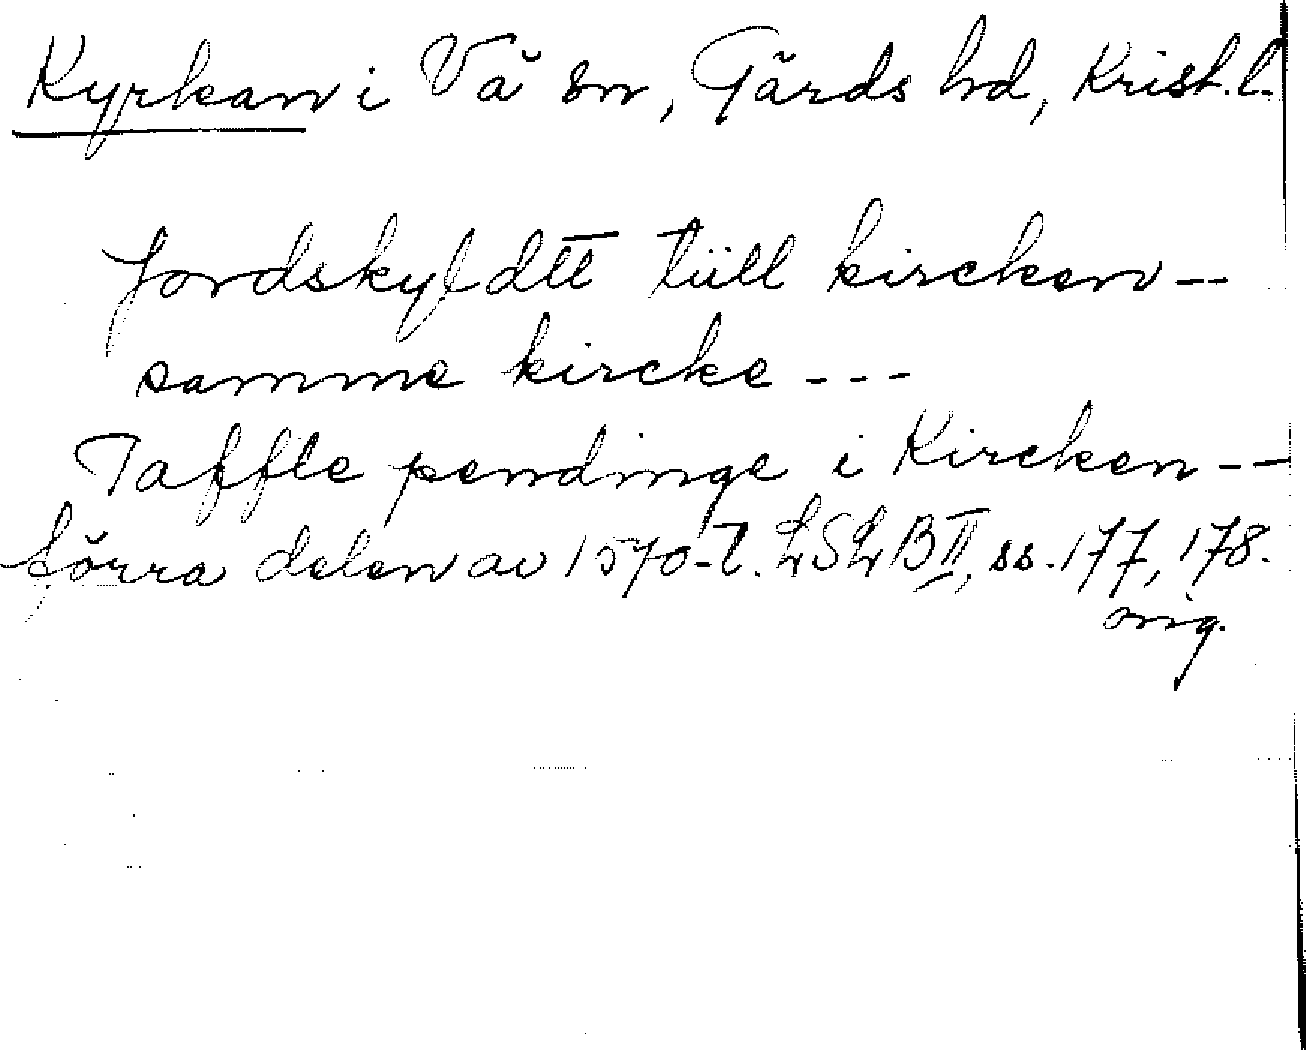 Kyrkan i Vä sn, Gärds hd, Krist. l.
Jordskyldtt tiill kircken --
samme kircke ---
Taffle pendinge i Kircken --
förra delen av 1570-t. LSLB II, ss. 177, 178.
orig.